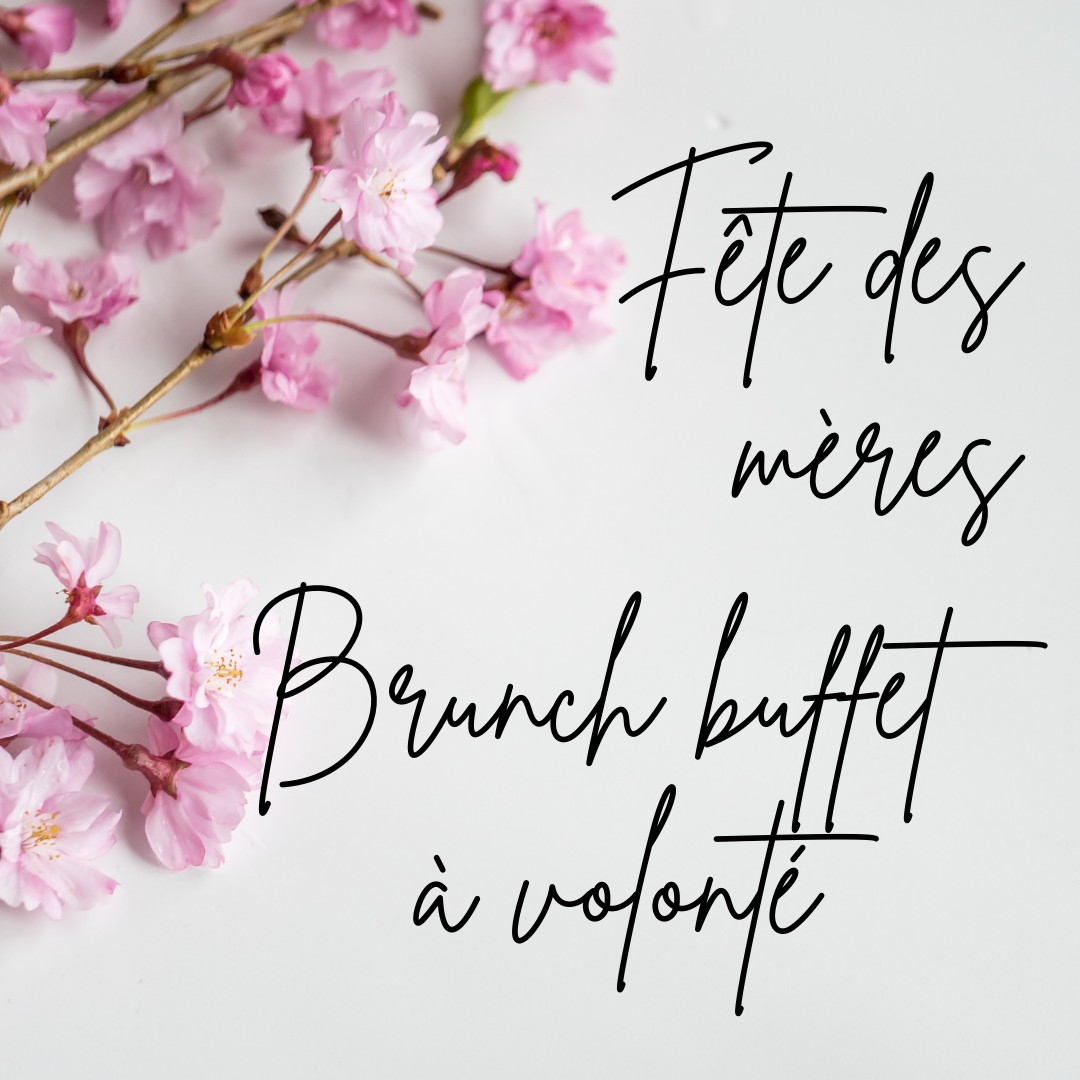 Fête des
mères
Brunch buffet
à volonté